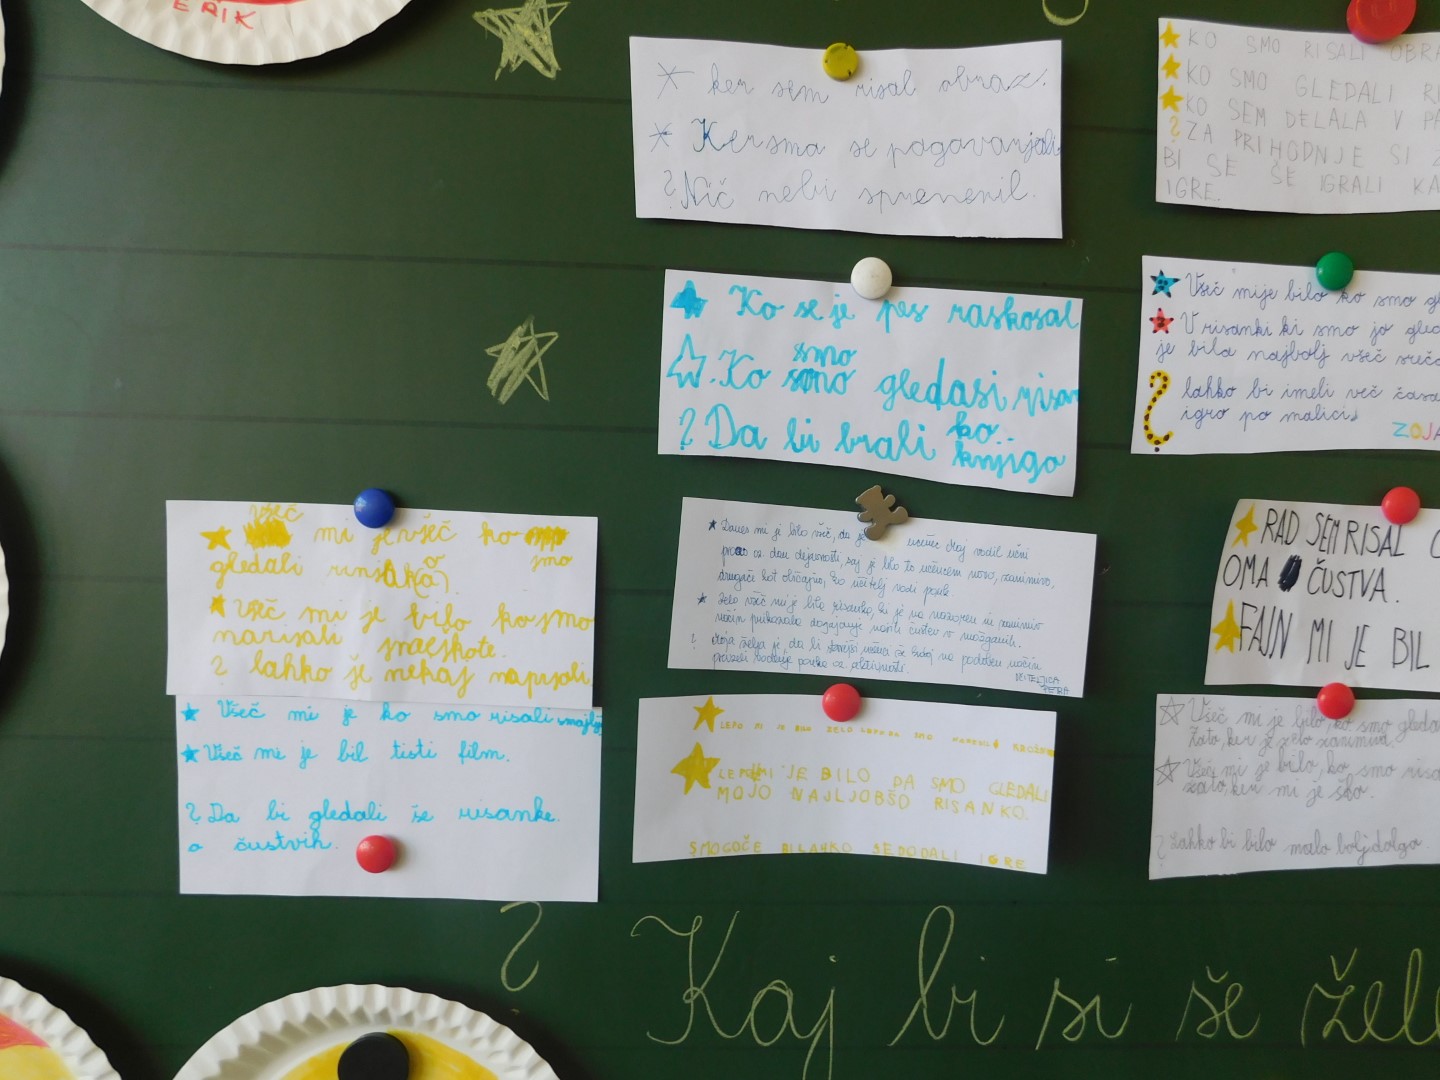 ERIK
ker sem risal obraz.
Ker smo se pogovarjali
? Nič nebi spremenil.
KO SMO RISALI OBRA
KO SMO GLEDALI RI
KO SEM DELALA V PA
? ZA PRIHODNJE SI
BI SE ŠE IGRALI KA
IGRE.
Ko se je pes raskosal
smo
Ko smo gledasi risan
? Da bi brali ko
knjigo
Všeč mije bilo ko smo gl
V risanki ki smo jo gled
je bila najbolj všeč sreča
? lahko bi imeli več časa
igro po malici
ZOJA
všeč
mi je všeč ko
smo
gledali
Všeč mi je bilo ko smo
narisali smeškote.
? lahko še nekaj napisali
Všeč mi je ko smo risali smajlij
Všeč mi je bil tisti film.
? Da bi gledali še risanke
o čustvih.
Danes mi je bilo všeč, da je učenec vodil učni
proces oz. dan dejavnosti, saj je bilo to učencem novo, zanimivo,
drugače kot običajno, ko učitelj vodi pouk.
Zelo všeč mi je bila risanka, ki je na nazoren in zanimiv
način prikazala dogajanje naših čustev v možganih.
? Moja želja je, da bi starejši učenci še kdaj na podoben način
prevzeli vodenje pouka oz. aktivnosti.
UČITELJICA
RAD SEM RISAL
OMA ČUSTVA.
FAJN MI JE BIL
LEPO MI JE BILO ZELO LEPO DA SMO
JE BILO DA SMO GLEDALI
MOJO NAJLJOBŠO RISANKO.
SMOGOČE BI LAHKO SE DODALI IGRE
Všeč mi je bilo, ko smo gleda
Zato, ker je zelo zanimiva.
Všeč mi je bilo, ko smo risa
zato, ker mi je šlo.
? Lahko bi bilo malo bolj dolgo.
? Kaj bi si še žele